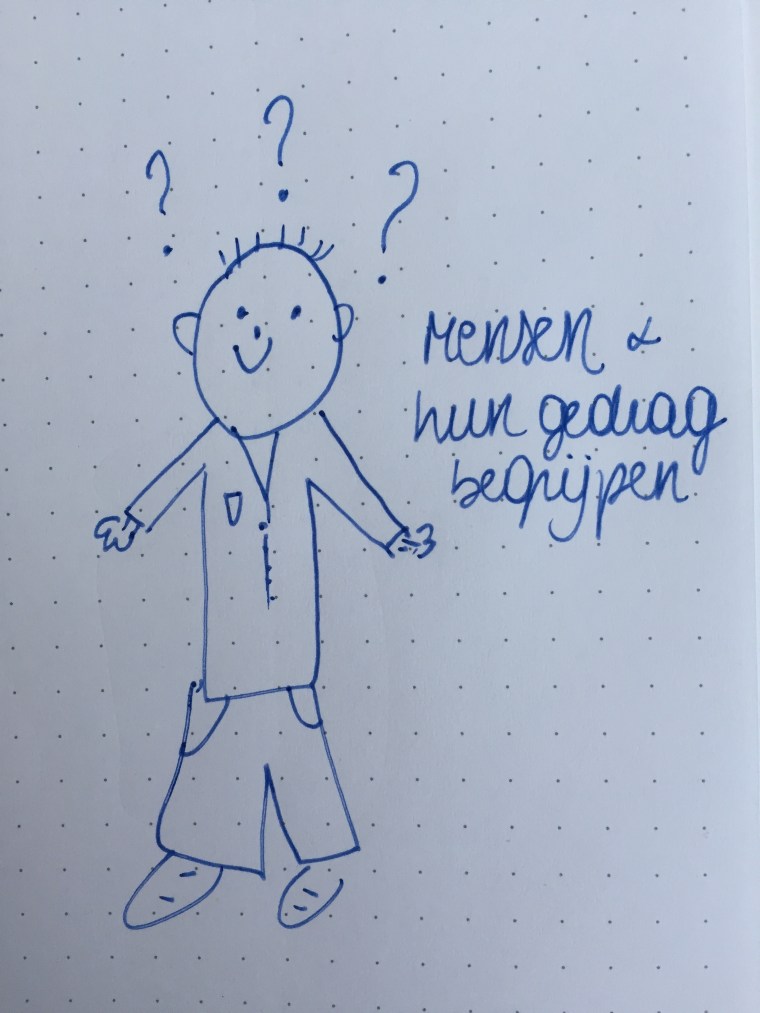 ? ? ?
mensen &
hun gedrag
begrijpen